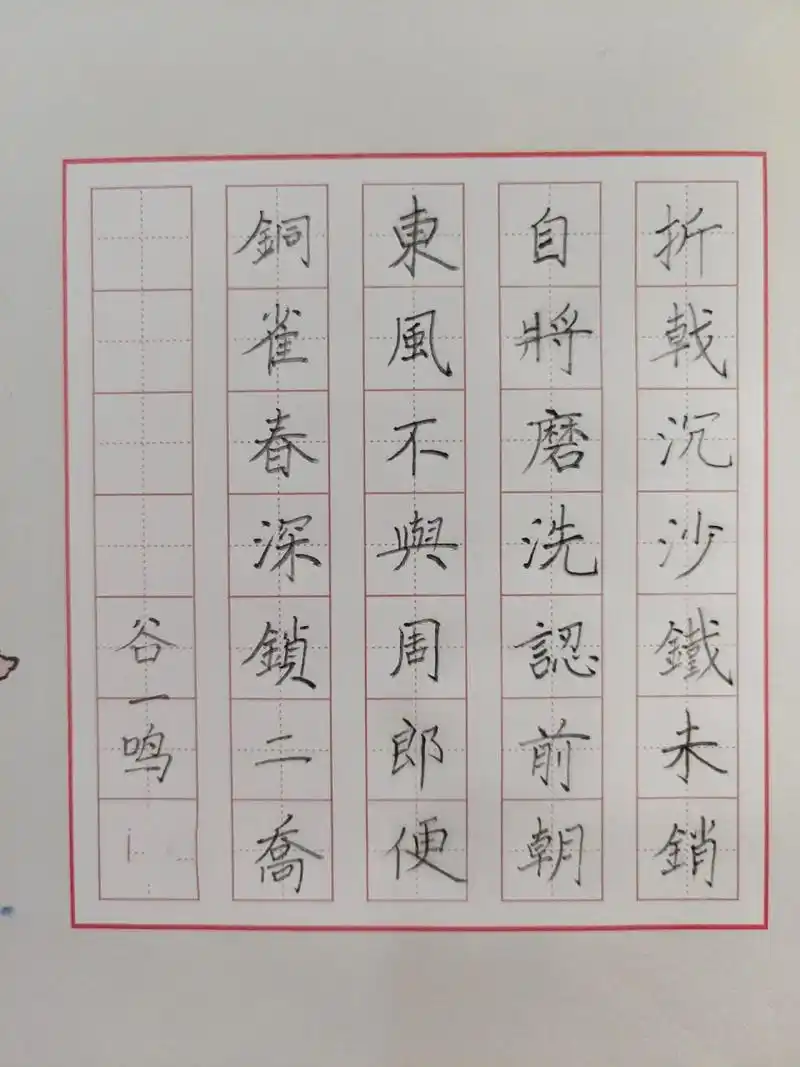 折戟沉沙鐵未銷
自將磨洗認前朝
東風不與周郎便
銅雀春深鎖二喬
谷一鸣